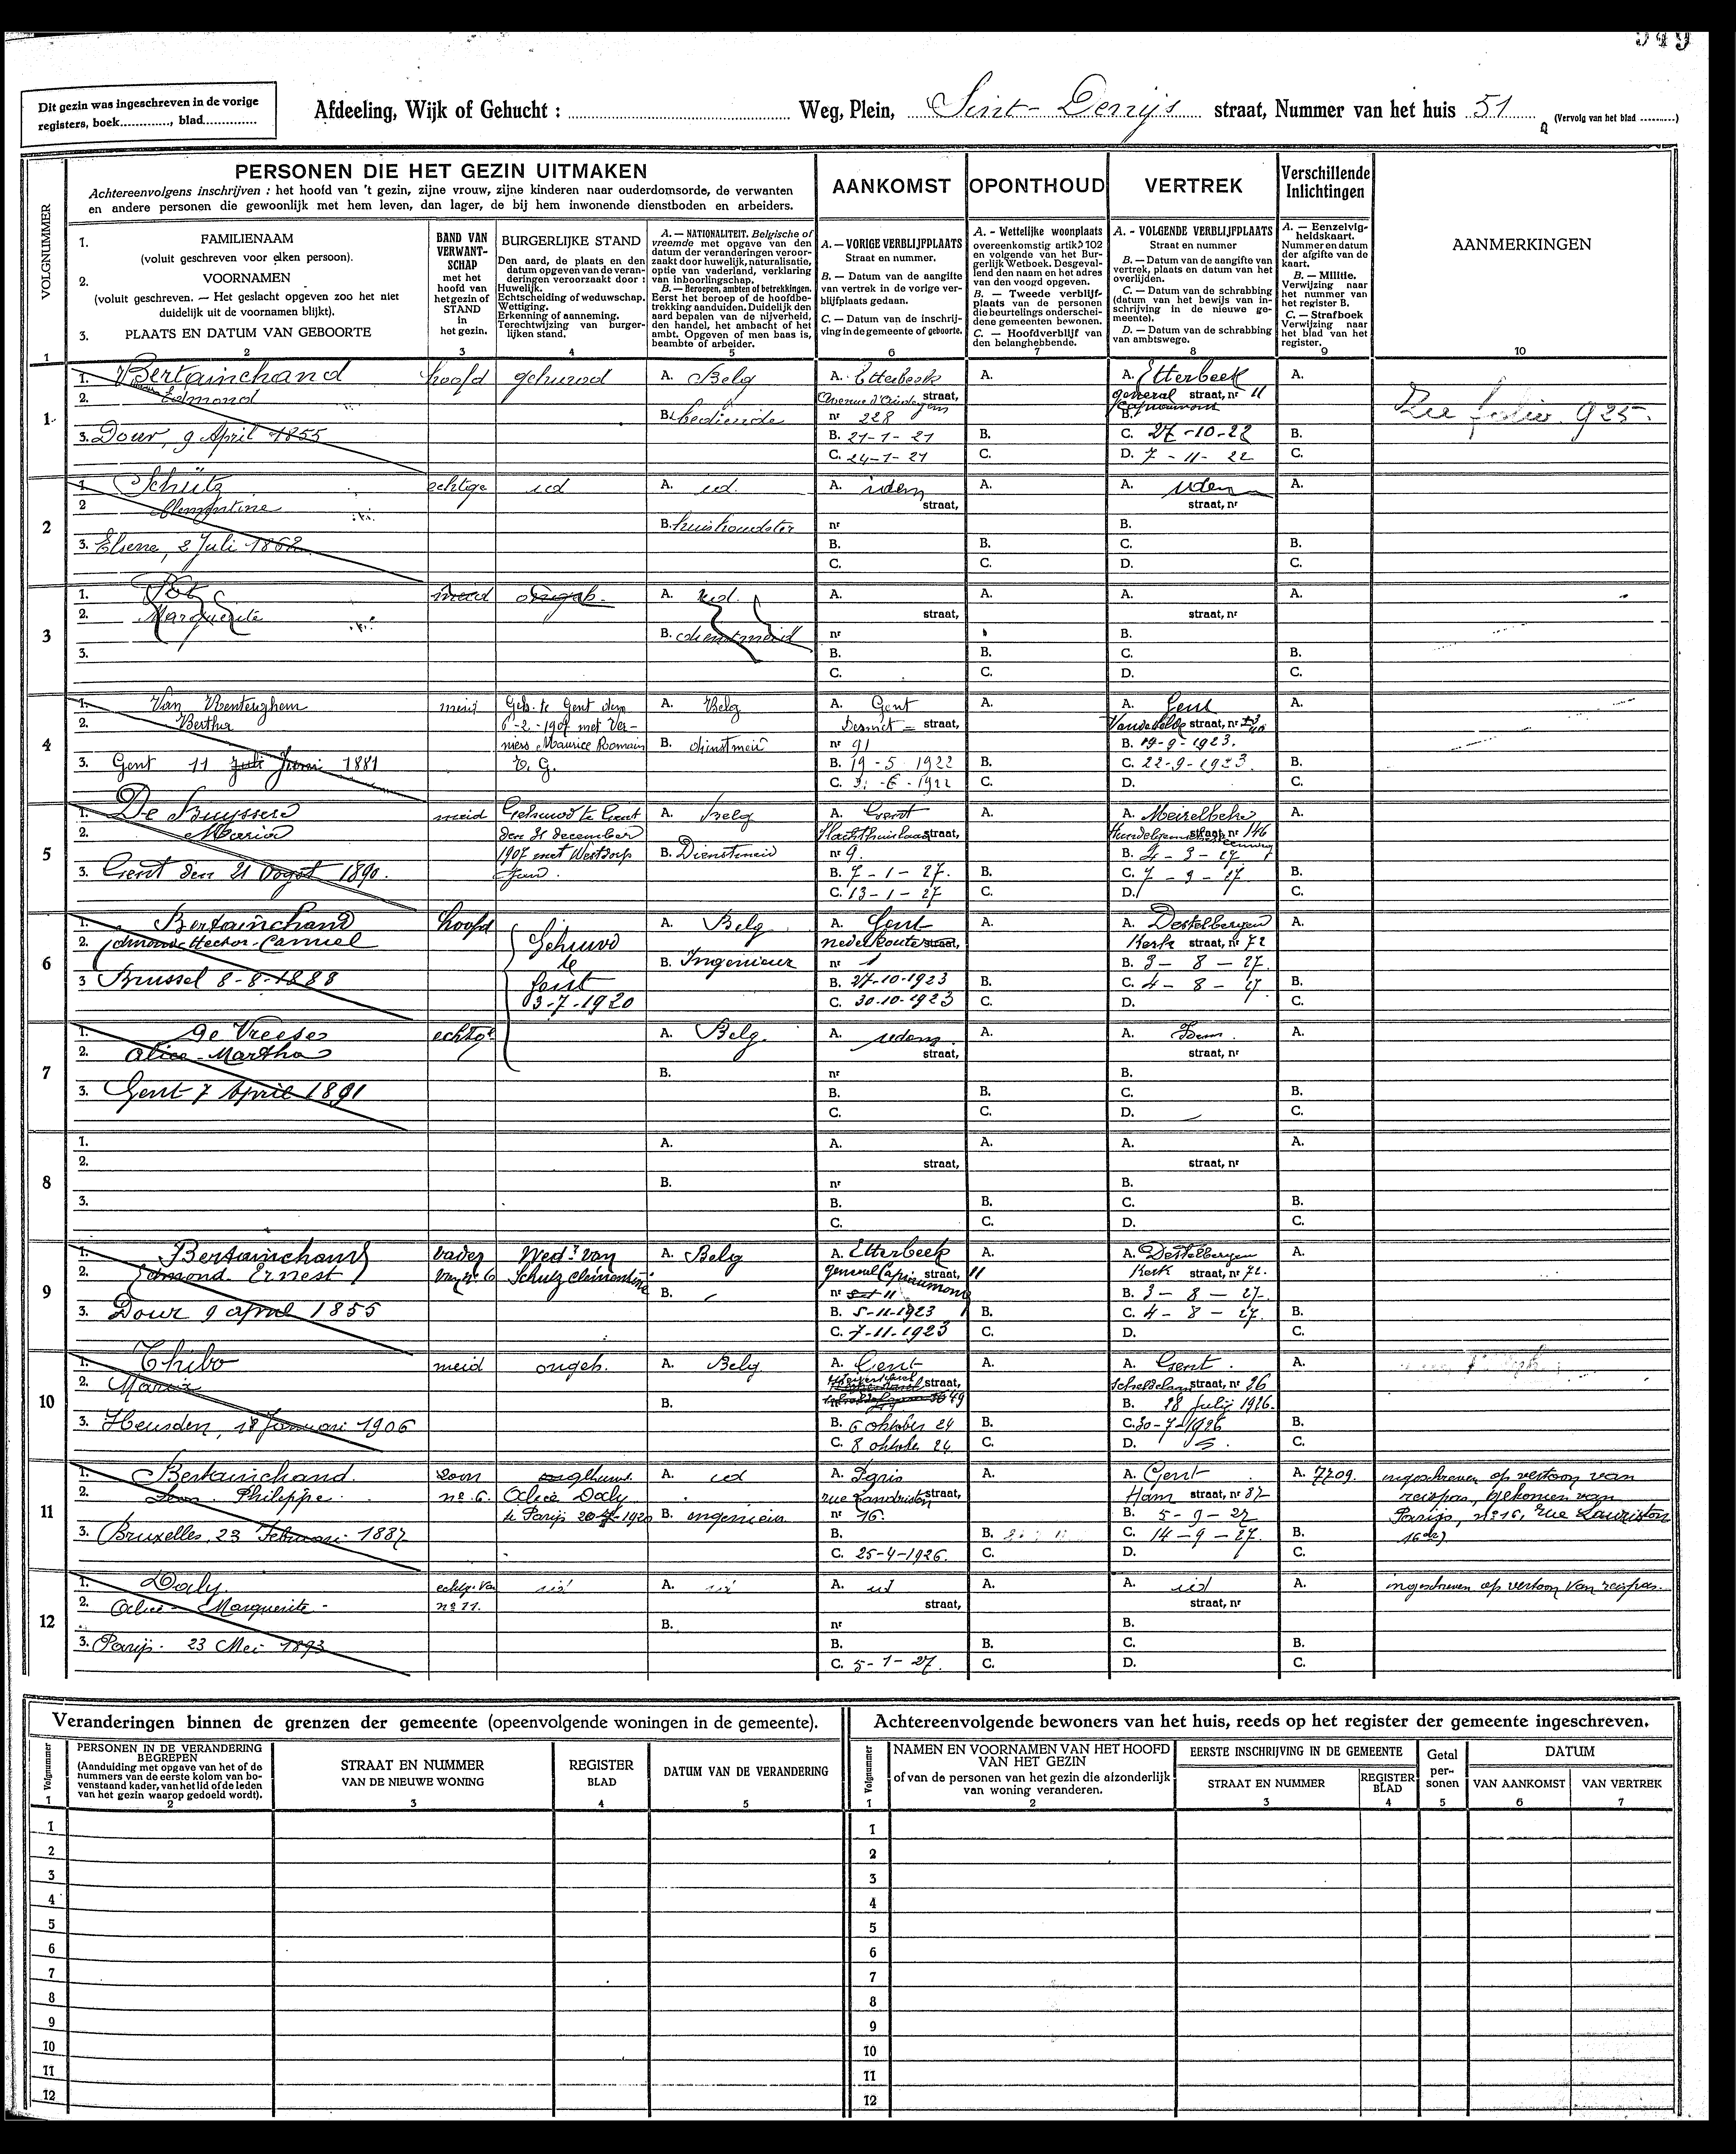 549
Dit gezin was ingeschreven in de vorige
registers, boek............, blad.............
Afdeeling, Wijk of Gehucht : Weg, Plein, Sint-Denijs straat, Nummer van het huis 51 (Vervolg van het blad ..........)
VOLGNUMMER
PERSONEN DIE HET GEZIN UITMAKEN
Achtereenvolgens inschrijven : het hoofd van 't gezin, zijne vrouw, zijne kinderen naar ouderdomsorde, de verwanten
en andere personen die gewoonlijk met hem leven, dan lager, de bij hem inwonende dienstboden en arbeiders.
AANKOMST OPONTHOUD VERTREK Verschillende Inlichtingen
1. FAMILIENAAM
(voluit geschreven voor elken persoon).
2. VOORNAMEN
(voluit geschreven. — Het geslacht opgeven zoo het niet
duidelijk uit de voornamen blijkt).
3. PLAATS EN DATUM VAN GEBOORTE
BAND VAN
VERWANT-
SCHAP
met het
hoofd van
het gezin of
STAND
in
het gezin.
BURGERLIJKE STAND
Den aard, de plaats en den
datum opgeven van de veran-
deringen veroorzaakt door :
Huwelijk.
Echtscheiding of weduwschap.
Wettiging.
Erkenning of aanneming.
Terechtwijzing van burger-
lijken stand.
A. — NATIONALITEIT. Belgische of
vreemde met opgave van den
datum der veranderingen veroor-
zaakt door huwelijk, naturalisatie,
optie van vaderland, verklaring
van inboorlingschap.
B. — Beroepen, ambten of betrekkingen.
Eerst het beroep of de hoofdbe-
trekking aanduiden. Duidelijk den
aard bepalen van de nijverheid,
den handel, het ambacht of het
ambt. Opgeven of men baas is,
beambte of arbeider.
A. — VORIGE VERBLIJFPLAATS
Straat en nummer.
B. — Datum van de aangifte
van vertrek in de vorige ver-
blijfplaats gedaan.
C. — Datum van de inschrij-
ving in de gemeente of geboorte.
A. - Wettelijke woonplaats
overeenkomstig artik. 102
en volgende van het Bur-
gerlijk Wetboek. Desgeval-
lend den naam en het adres
van den voogd opgeven.
B. — Tweede verblijf-
plaats van de personen
die beurtelings onderschei-
dene gemeenten bewonen.
C. — Hoofdverblijf van
den belanghebbende.
A. - VOLGENDE VERBLIJFPLAATS
Straat en nummer
B. — Datum van de aangifte van
vertrek, plaats en datum van het
overlijden.
C. — Datum van de schrabbing
(datum van het bewijs van in-
schrijving in de nieuwe ge-
meente).
D. — Datum van de schrabbing
van ambtswege.
A. — Eenzelvig-
heidskaart.
Nummer en datum
der afgifte van de
kaart.
B. — Militie.
Verwijzing naar
het nummer van
het register B.
C. — Strafboek
Verwijzing naar
het blad van het
register.
AANMERKINGEN
1 2 3 4 5 6 7 8 9 10
1
1. Bertainchand hoofd gehuwd A. Belg A. Etterbeek A. A. Etterbeek A.
2. Edmond straat, general straat, nr 11
B. bediende nr 228 B. Zie folio 925.
3. Dour, 9 April 1855 B. 21-1-21 B. C. 27-10-22 B.
C. 24-1-21 C. D. 7-11-22 C.
2
1. Schütz echtge id A. id. A. idem A. A. idem A.
2 straat, straat, nr
B. huishoudster nr B.
3. Elsene, 2 Juli 1862 B. B. C. B.
C. C. D. C.
3
1. Pot meid ongeh. A. id. A. A. A. A.
2. Marguerite straat, straat, nr
B. dienstmeid nr B.
3. B. B. C. B.
C. C. D. C.
4
1. Van Renterghem meid Geh. te Gent den A. Belg A. Gent A. A. Gent A.
2. Bertha 6-2-1907 met Ver- Desmet straat, straat, nr
niers Maurice Romain B. dienstmeid nr 91 B. 19-9-1923.
3. Gent 11 Juli Juni 1881 V. G. B. 19-5-1922 B. C. 22-9-1923. B.
C. C. D. C.
5
1. De Buyssere meid Gehuwd te Gent A. belg A. Gent A. A. Meirelbeke A.
2. Maria den 21 december Slachthuislaan straat, straat, nr 146
1907 met Westdorp B. Dienstmeid nr 9. B. 2-3-27
3. Gent den 21 Oogst 1890. Jan. B. 7-1-27. B. C. 7-9-27 B.
C. 13-1-27 C. D. C.
6
1. Bertainchand hoofd Gehuwd A. Belg A. Gent A. A. Destelbergen A.
2. Edmond Hector-Camiel te nederkouter straat, Kerk straat, nr 72
Gent B. Ingenieur nr 1 B. 3-8-27.
3 Brussel 8-8-1888 3-7-1920 B. 27-10-1923 B. C. 4-8-27 B.
C. 30-10-1923 C. D. C.
7
1. De Vreese echtge A. Belg. A. idem. A. A. Idem. A.
2. Alice-Martha straat, straat, nr
B. nr B.
3. Gent 7 April 1891 B. B. C. B.
C. C. D. C.
8
1. A. A. A. A. A.
2. straat, straat, nr
B. nr B.
3. B. B. C. B.
C. C. D. C.
9
1. Bertainchand vader Wedr van A. Belg A. Etterbeek A. A. Destelbergen A.
2. Edmond Ernest van nr 6 Schutz Clémentine general Capiaumont straat, 11 Kerk straat, nr 72.
B. nr 11 B. 3-8-27.
3. Dour 9 april 1855 B. 5-11-1923 B. C. 4-8-27. B.
C. 7-11-1923 C. D. C.
10
1. Thibo meid ongeh. A. Belg A. Gent A. A. Gent. A.
2. Maria straat, Scheldelaan straat, nr 26
B. 49 B. 28 Julij 1926.
3. Heusden, 18 Januari 1906 B. 6 oktober 24 B. C. 30-7-1926 B.
C. 8 oktober 24 C. D. C.
11
1. Bertainchand. zoon A. id A. Paris A. A. Gent A. 7709. ingeschreven op vertoon van
2. Léon. Philippe. no 6. Alice Daly rue Lauriston straat, Ham straat, nr 87 reispas, gekomen van
te Parijs B. ingenieur nr 16. B. 5-9-27 Parijs, no 16, rue Lauriston
3. Bruxelles, 23 Februari 1887 B. B. C. 14-9-27. B. 16
C. 25-4-1926. C. D. C.
12
1. Daly. echtg. van id A. id A. id A. A. id A. ingeschreven op vertoon van reispas.
2. Alice - Marguerite - no 11. straat, straat, nr
B. nr B.
3. Parijs. 23 Mei 1893 B. B. C. B.
C. 5-1-27. C. D. C.
Veranderingen binnen de grenzen der gemeente (opeenvolgende woningen in de gemeente).
Volgnummer
PERSONEN IN DE VERANDERING
BEGREPEN
(Aanduiding met opgave van het of de
nummers van de eerste kolom van bo-
venstaand kader, van het lid of de leden
van het gezin waarop gedoeld wordt).
STRAAT EN NUMMER
VAN DE NIEUWE WONING
REGISTER
BLAD
DATUM VAN DE VERANDERING
1 2 3 4 5
1
2
3
4
5
6
7
8
9
10
11
12
Achtereenvolgende bewoners van het huis, reeds op het register der gemeente ingeschreven.
Volgnummer
NAMEN EN VOORNAMEN VAN HET HOOFD
VAN HET GEZIN
of van de personen van het gezin die afzonderlijk
van woning veranderen.
EERSTE INSCHRIJVING IN DE GEMEENTE
STRAAT EN NUMMER
REGISTER
BLAD
Getal
per-
sonen
DATUM
VAN AANKOMST VAN VERTREK
1 2 3 4 5 6 7
1
2
3
4
5
6
7
8
9
10
11
12